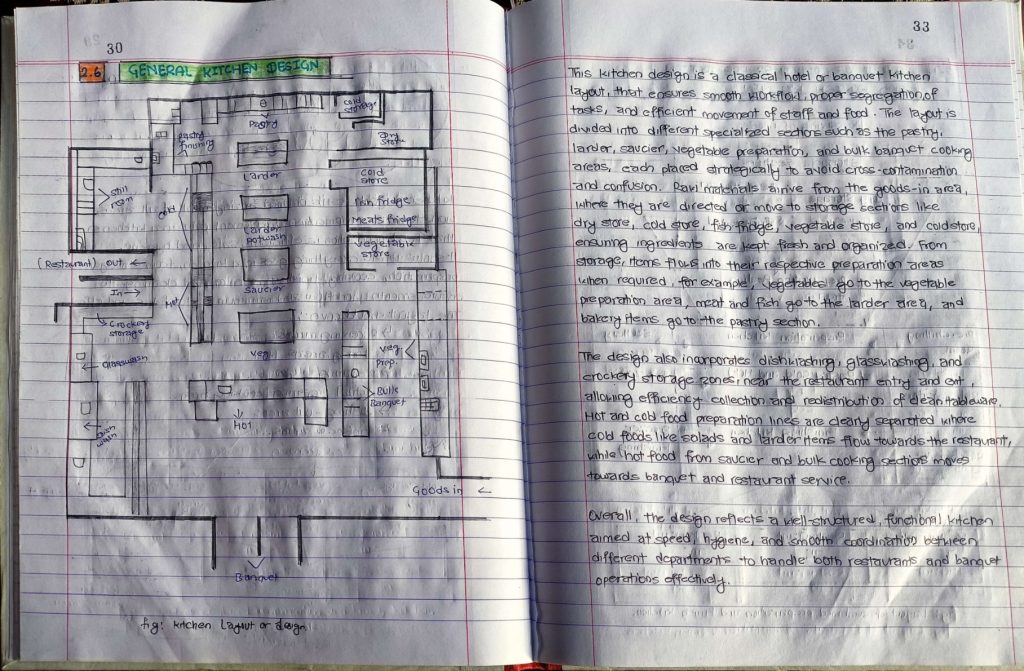 30
2.6 GENERAL KITCHEN DESIGN
cold storage
Pastry
Pastry finishing
Dry store
Larder
cold store
still room
cold
fish fridge
Larder potwash
Meats fridge
vegetable store
(Restaurant) out ←
In →
Hot
saucier
crockery storage
Glasswash
veg
veg prep.
Bulk Banquet
Hot
Dish wash
Goods in ←
Banquet
fig: kitchen layout or design
33
This kitchen design is a classical hotel or banquet kitchen
layout, that ensures smooth workflow, proper segregation, of
tasks, and efficient movement of staff and food. The layout is
divided into different specialized sections such as the pastry,
larder, saucier, vegetable preparation, and bulk banquet cooking
areas, each placed strategically to avoid cross-contamination
and confusion. Raw materials airrive from the goods-in area,
where they are directed or move to storage sections like
dry store, cold store, fish fridge, vegetable store, and coldstore,
ensuring ingredients are kept fresh and organized. From
storage, items flows into their respective preparation areas
when required, for example, vegetables go to the vegetable
preparation area, meat and fish go to the larder area, and
bakery items go to the pastry section.
The design also incorporates dishwashing, glasswashing, and
crockery storage zones, near the restaurant entry and exit,
allowing efficiency collection and redistribution of clean tableware.
Hot and cold food preparation lines are clearly separated where
cold foods like salads and larder items flow towards the restaurant,
while hot food from saucier and bulk cooking sections moves
towards banquet and restaurant service.
Overall, the design reflects a well-structured, functional kitchen
aimed at speed, hygiene, and smooth coordination between
different departments to handle both restaurants and banquet
operations effectively.